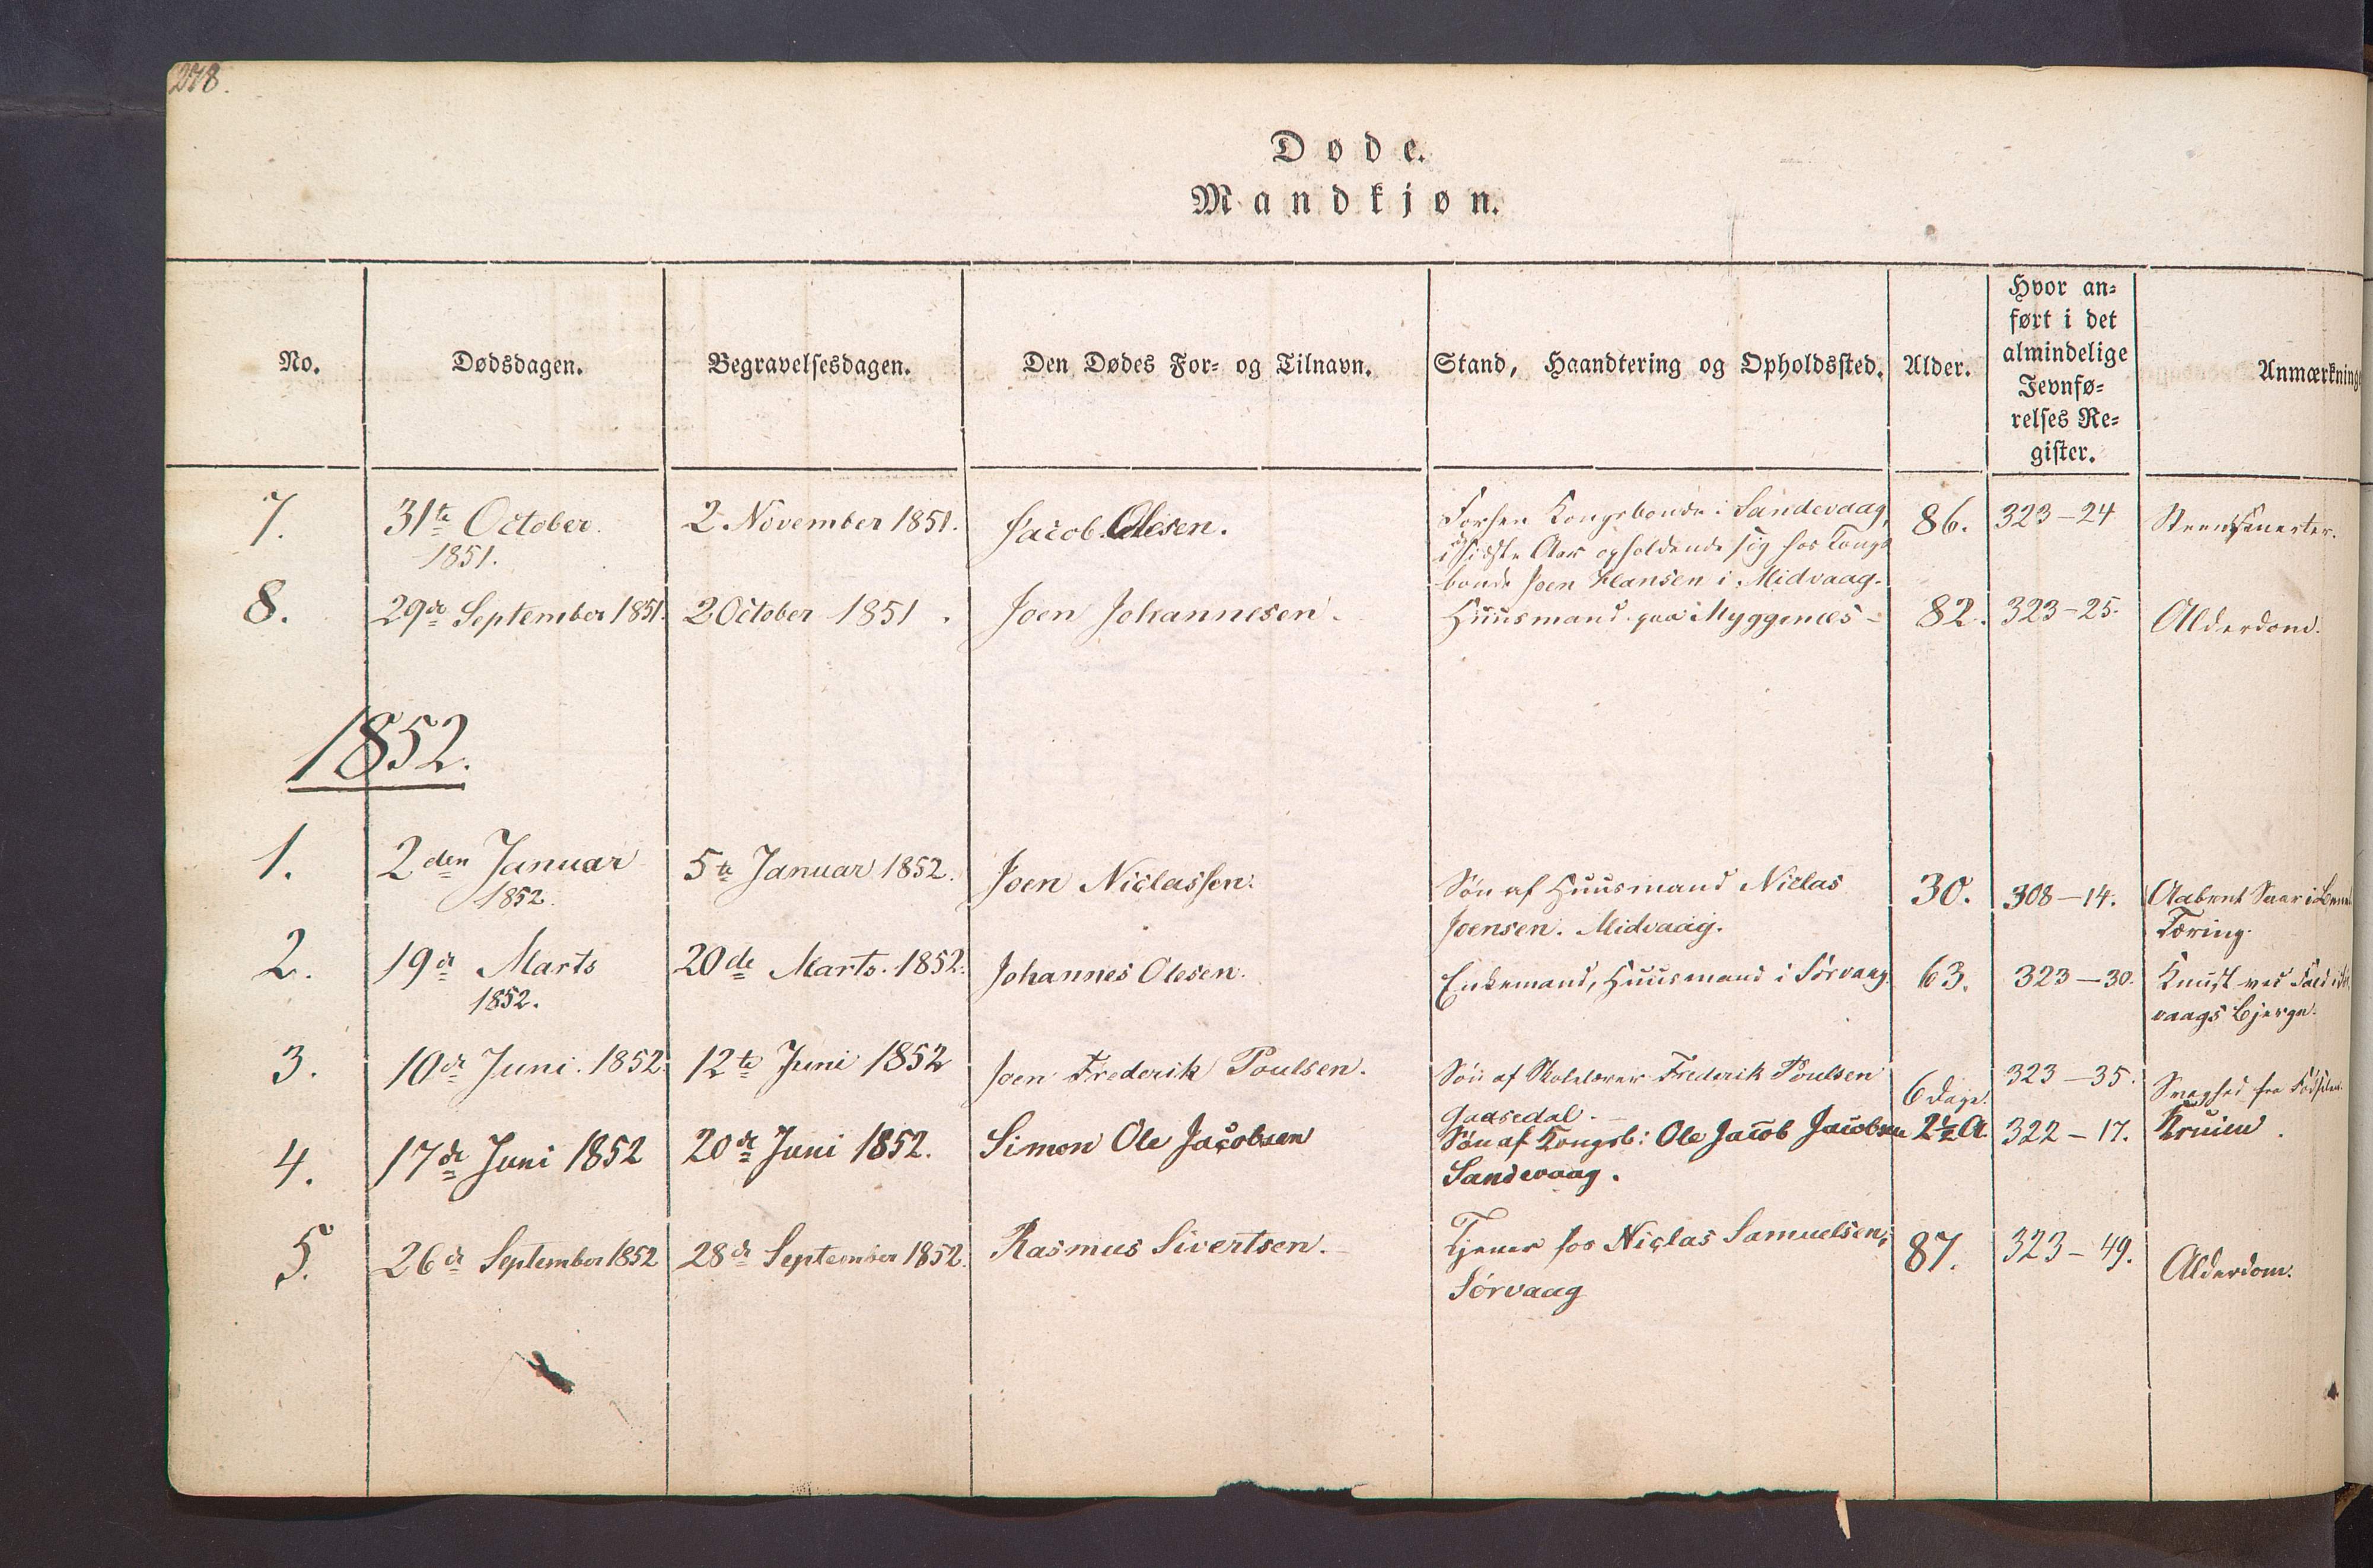 278.
Døde.
Mandkjøn.
No.
Dødsdagen.
Begravelsesdagen.
Den Dødes For- og Tilnavn.
Stand, Haandtering og Opholdssted.
Alder.
Hvor an-
ført i det
almindelige
Jevnfø-
relses Re-
gister.
Anmærkning
7.
31te October
1851.
2 November 1851.
Jacob Olesen.
Forhen Kongsbonde i Sandevaag,
i sidste Aar opholdende sig hos Kongs
bonde Joen Hansen i Midvaag.
86.
323-24
Steensmerter.
8.
29de September 1851.
2 October 1851.
Joen Johannesen.
Huusmand paa Myggenæs-
82.
323-25.
Alderdom.
1852.
1.
2den Januar
1852.
5te Januar 1852.
Joen Niclassen.
Søn af Huusmand Niclas
Joensen. Midvaag.
30.
308-14.
Aabent Saar i
Tæring.
2.
19de Marts
1852.
20de Marts. 1852.
Johannes Olesen.
Enkemand, Huusmand i Sørvaag.
63.
323-30.
Knust ved Fald i
vaags Bjerge.
3.
10de Juni. 1852.
12te Juni 1852
Joen Frederik Poulsen.
Søn af Skolelærer Frederik Poulsen
Gaasedal.-
6 Dage.
323-35.
Svaghed fra Fødselen.
4.
17de Juni 1852
20de Juni 1852.
Simon Ole Jacobsen
Søn af Kongsb: Ole Jacob Jacobsen
Sandevaag.
2½ A.
322-17.
Kruien.
5.
26de September 1852
28de September 1852.
Rasmus Sivertsen.
Tjener hos Niclas Samuelsen;
Sørvaag
87.
323-49.
Alderdom.